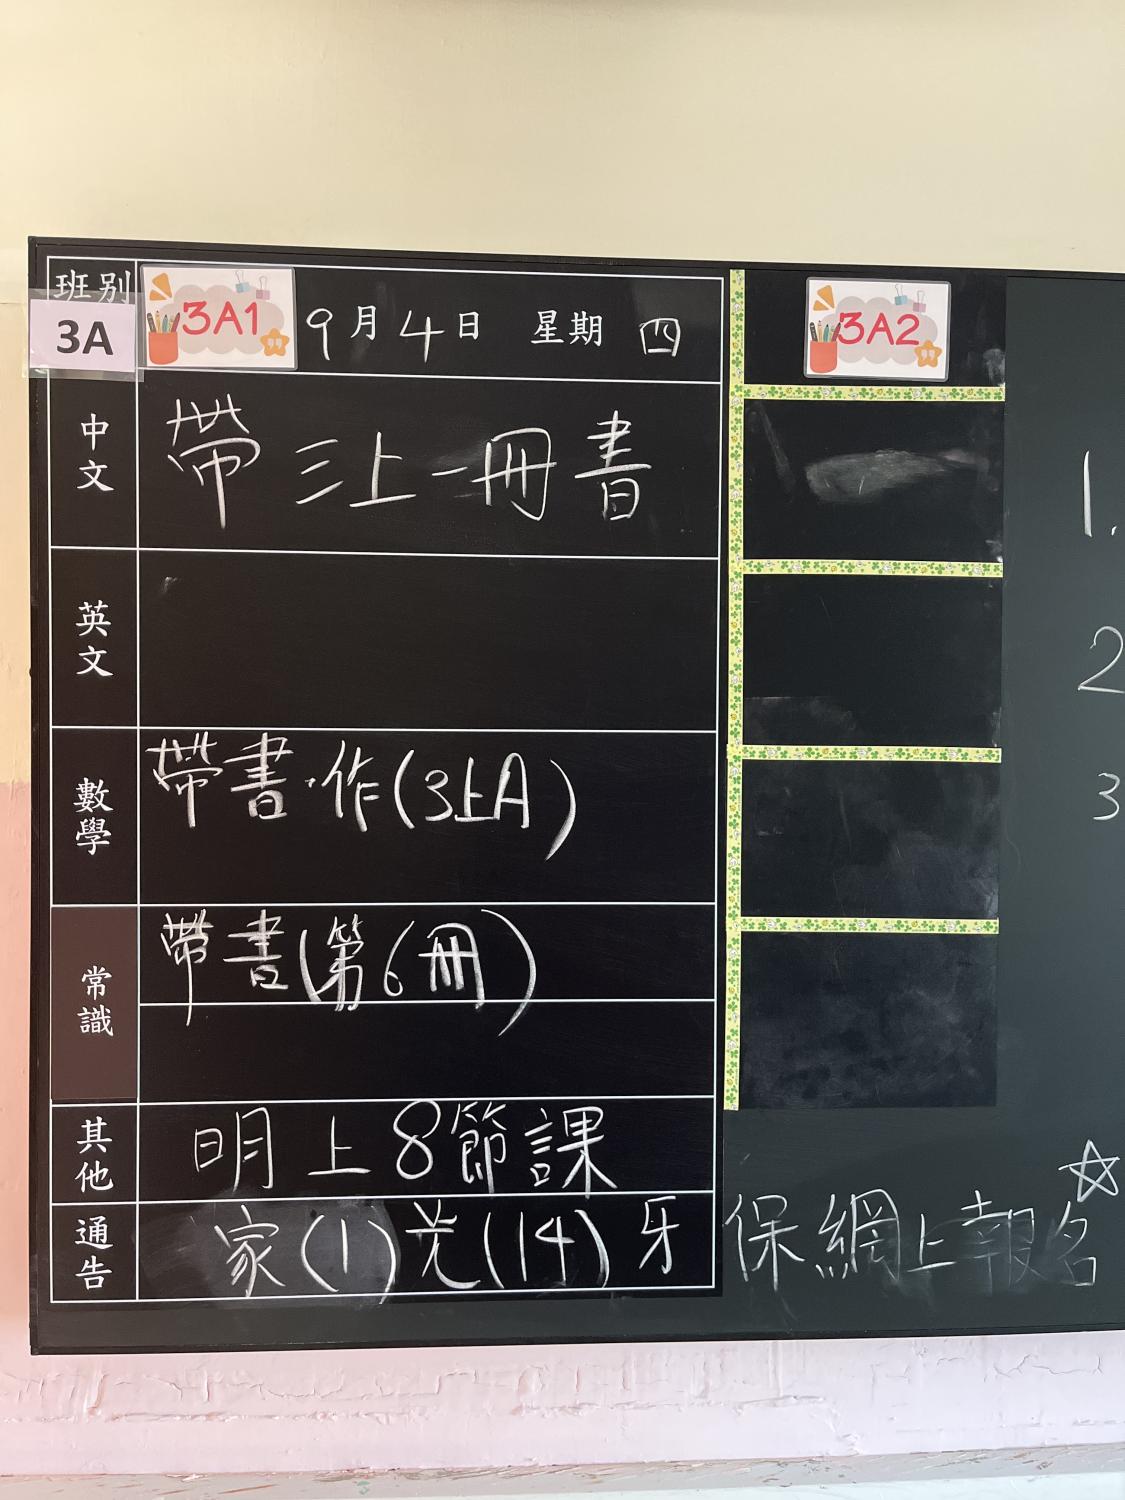 班別
3A
3A1
9月4日 星期 四
3A2
中文
帶三上一冊書
1.
英文
2
數學
帶書、作(3上A)
3
常識
帶書(第6冊)
其他
明上8節課
通告
家(1)光(14)牙保網上報名☆